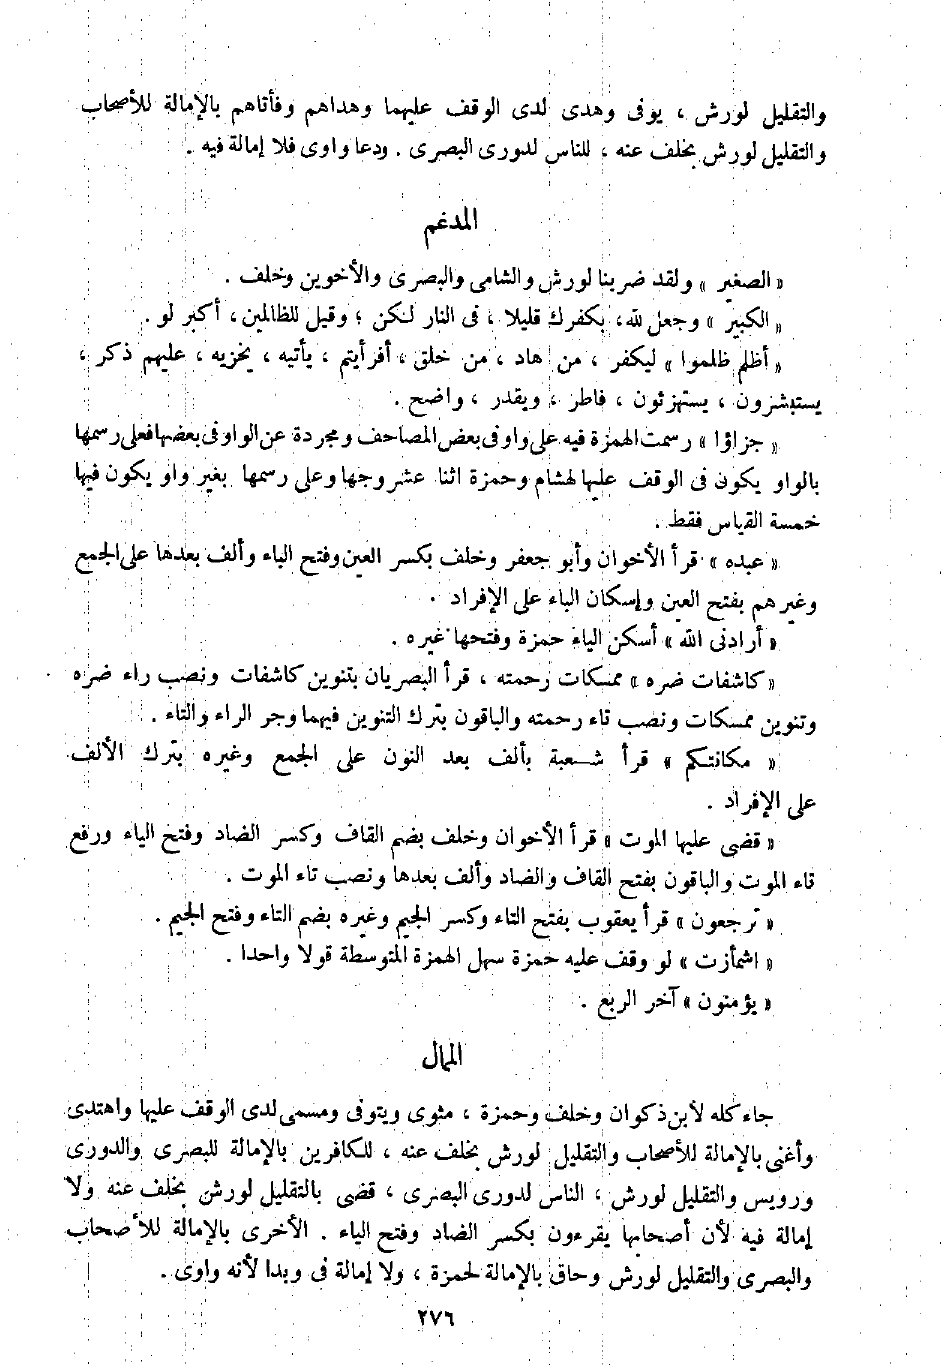 والتقليل لورش ، يوفى وهدى لدى الوقف عليهما وهداهم وفأتاهم بالإمالة للأصحاب
والتقليل لورش بخلف عنه ، للناس لدورى البصرى . ودعا واوى فلا إمالة فيه .
المدغم
« الصغير » ولقد ضربنا لورش والشامى والبصرى والأخوين وخلف .
« الكبير » وجعل لله ، بكفرك قليلا ، فى النار لكن ؛ وقيل للظالمين ، أكبر لو .
« أظلم ظلموا » ليكفر ، من هاد ، من خلق ، أفرأيتم ، يأتيه ، يخزيه ، عليهم ذكر ،
يستبشرون ، يستهزئون ، فاطر ، ويقدر ، واضح .
« جزاؤا » رسمت الهمزة فيه على واو فى بعض المصاحف ومجردة عن الواو فى بعضها فعلى رسمها
بالواو يكون فى الوقف عليها لهشام وحمزة اثنا عشر وجها وعلى رسمها بغير واو يكون فيها
خمسة القياس فقط .
« عبده » قرأ الأخوان وأبو جعفر وخلف بكسر العين وفتح الباء وألف بعدها على الجمع
وغيرهم بفتح العين وإسكان الباء على الإفراد .
« أرادنى الله » أسكن الياء حمزة وفتحها غيره .
« كاشفات ضره » ممسكات رحمته ، قرأ البصريان بتنوين كاشفات ونصب راء ضره
وتنوين ممسكات ونصب تاء رحمته والباقون بترك التنوين فيهما وجر الراء والتاء .
« مكانتكم » قرأ شعبة بألف بعد النون على الجمع وغيره بترك الألف
على الإفراد .
« قضى عليها الموت » قرأ الأخوان وخلف بضم القاف وكسر الضاد وفتح الياء ورفع
تاء الموت والباقون بفتح القاف والضاد وألف بعدها ونصب تاء الموت .
« ترجعون » قرأ يعقوب بفتح التاء وكسر الجيم وغيره بضم التاء وفتح الجيم .
« اشمأزت » لو وقف عليه حمزة سهل الهمزة المتوسطة قولا واحدا .
« يؤمنون » آخر الربع .
الممال
جاء كله لابن ذكوان وخلف وحمزة ، مثوى ويتوفى ومسمى لدى الوقف عليها واهتدى
وأغنى بالإمالة للأصحاب والتقليل لورش بخلف عنه ، للكافرين بالإمالة للبصرى والدورى
ورويس والتقليل لورش ، الناس لدورى البصرى ، قضى بالتقليل لورش بخلف عنه ولا
إمالة فيه لأن أصحابها يقرءون بكسر الضاد وفتح الياء . الأخرى بالإمالة للأصحاب
والبصرى والتقليل لورش وحاق بالإمالة لحمزة ، ولا إمالة فى وبدا لأنه واوى .
٢٧٦